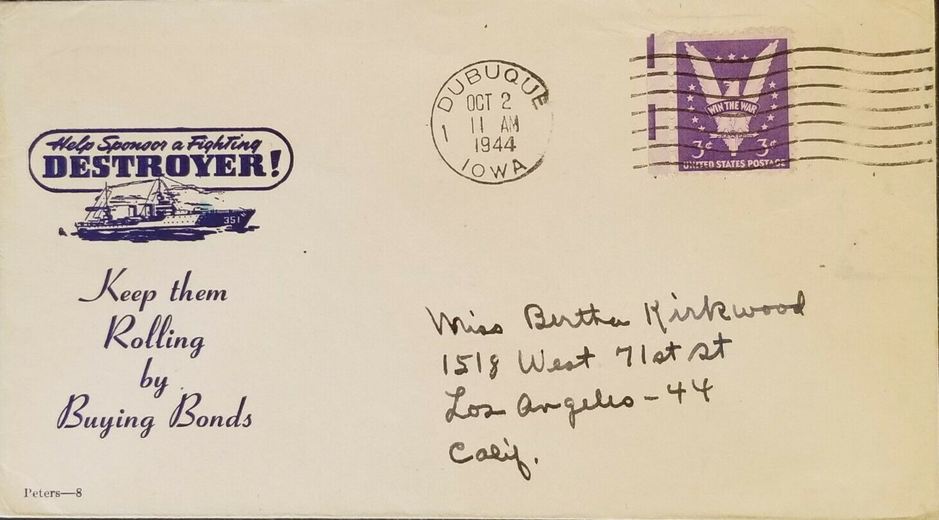 Help Sponsor a Fighting
DESTROYER!
351
Keep them
Rolling
by
Buying Bonds
Peters—8
DUBUQUE
OCT 2
11 AM
1944
1
IOWA
WIN THE WAR
3¢ 3¢
UNITED STATES POSTAGE
Miss Bertha Kirkwood
1518 West 71st St
Los Angeles - 44
Calif.